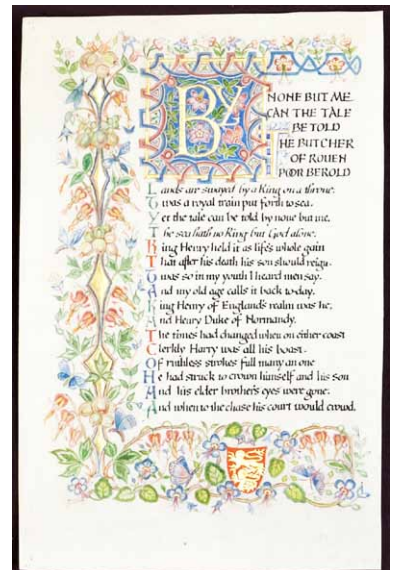 BY
NONE BUT ME
CAN THE TALE
BE TOLD
THE BUTCHER
OF ROUEN
POOR BEROLD
Lands are swayed by a King on a throne.
Twas a royal train put forth to sea.
Yet the tale can be told by none but me.
The sea hath no King but God alone.
King Henry held it as life's whole gain
That after his death his son should reign.
Twas so in my youth I heard men say,
And my old age calls it back to day.
King Henry of England's realm was he,
And Henry Duke of Normandy.
The times had changed when on either coast
Clerkly Harry was all his boast.
Of ruthless strokes full many an one
He had struck to crown himself and his son
And his elder brother's eyes were gone.
And when to the chase his court would crowd.